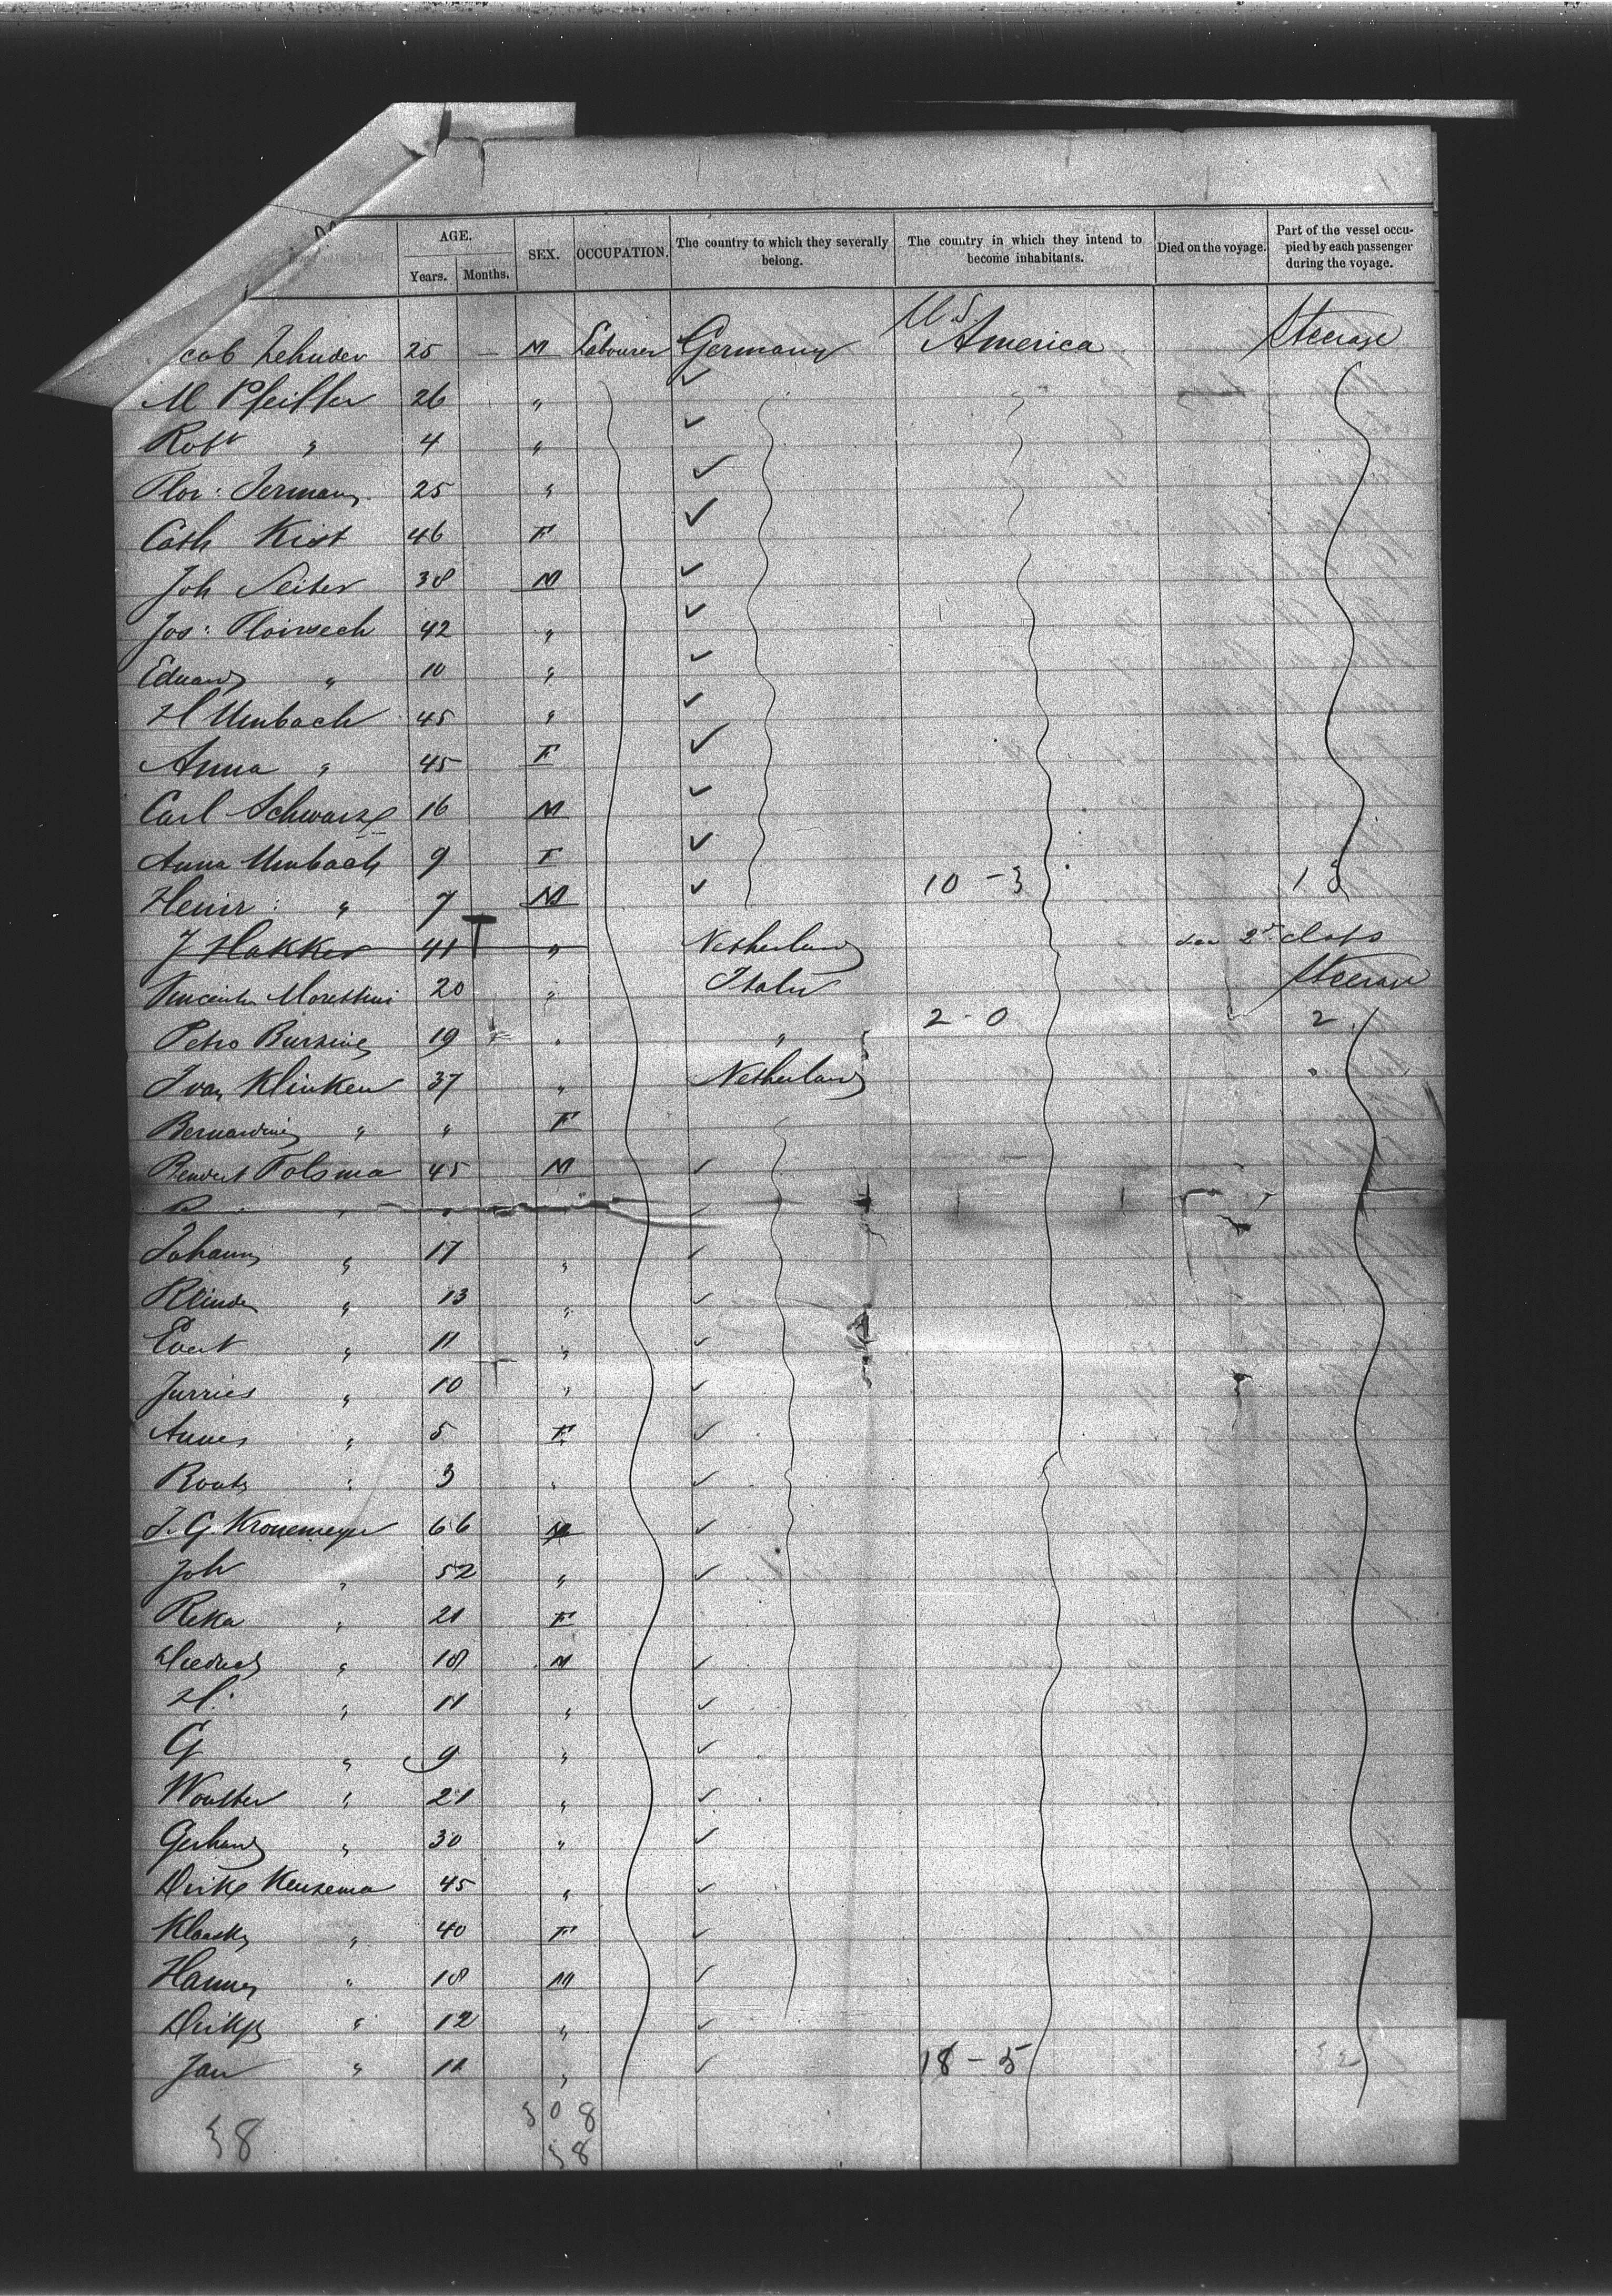 AGE.
SEX. OCCUPATION. The country to which they severally belong. The country in which they intend to become inhabitants. Died on the voyage. Part of the vessel occupied by each passenger during the voyage.
Years. Months.
U.S.
cob Zehnder 25 — M Labourer Germany America Steerage
M Pfeiffer 26 "
Robt " 4 "
Flor: Jermann 25 "
Cath Kist 46 F
Joh Seiter 38 M
Jos: 42 "
Eduard " 10 "
H Umbach 45 "
Anna " 45 F
Carl Schwarze 16 M
Anna Umbach 9 F
Heinr: " 7 M 10 - 3 13
J Hakker 41 " Netherland see 2d class
Vincento Morettini 20 " Italy Steerage
Petro 19 " " 2 - 0 2
J van Klinken 37 " Netherland
Bernardine " " F
Berend Folsma 45 M
Johann " 17 "
Reinder " 13 "
Evert " 11 "
Jurries " 10 "
Annes " 5 F
" 3 "
J. G. Kronemeyer 66 M
Joh " 52 "
Reka " 21 F
Diedrich " 18 M
H. " 11 "
G " 9 "
Woulter " 21 "
Gerhard " 30 "
Dirk Keuzema 45 "
Klaaske " 40 F
Hannes " 18 M
" 12 "
Jan " 11 " 18 - 5
308
38 38